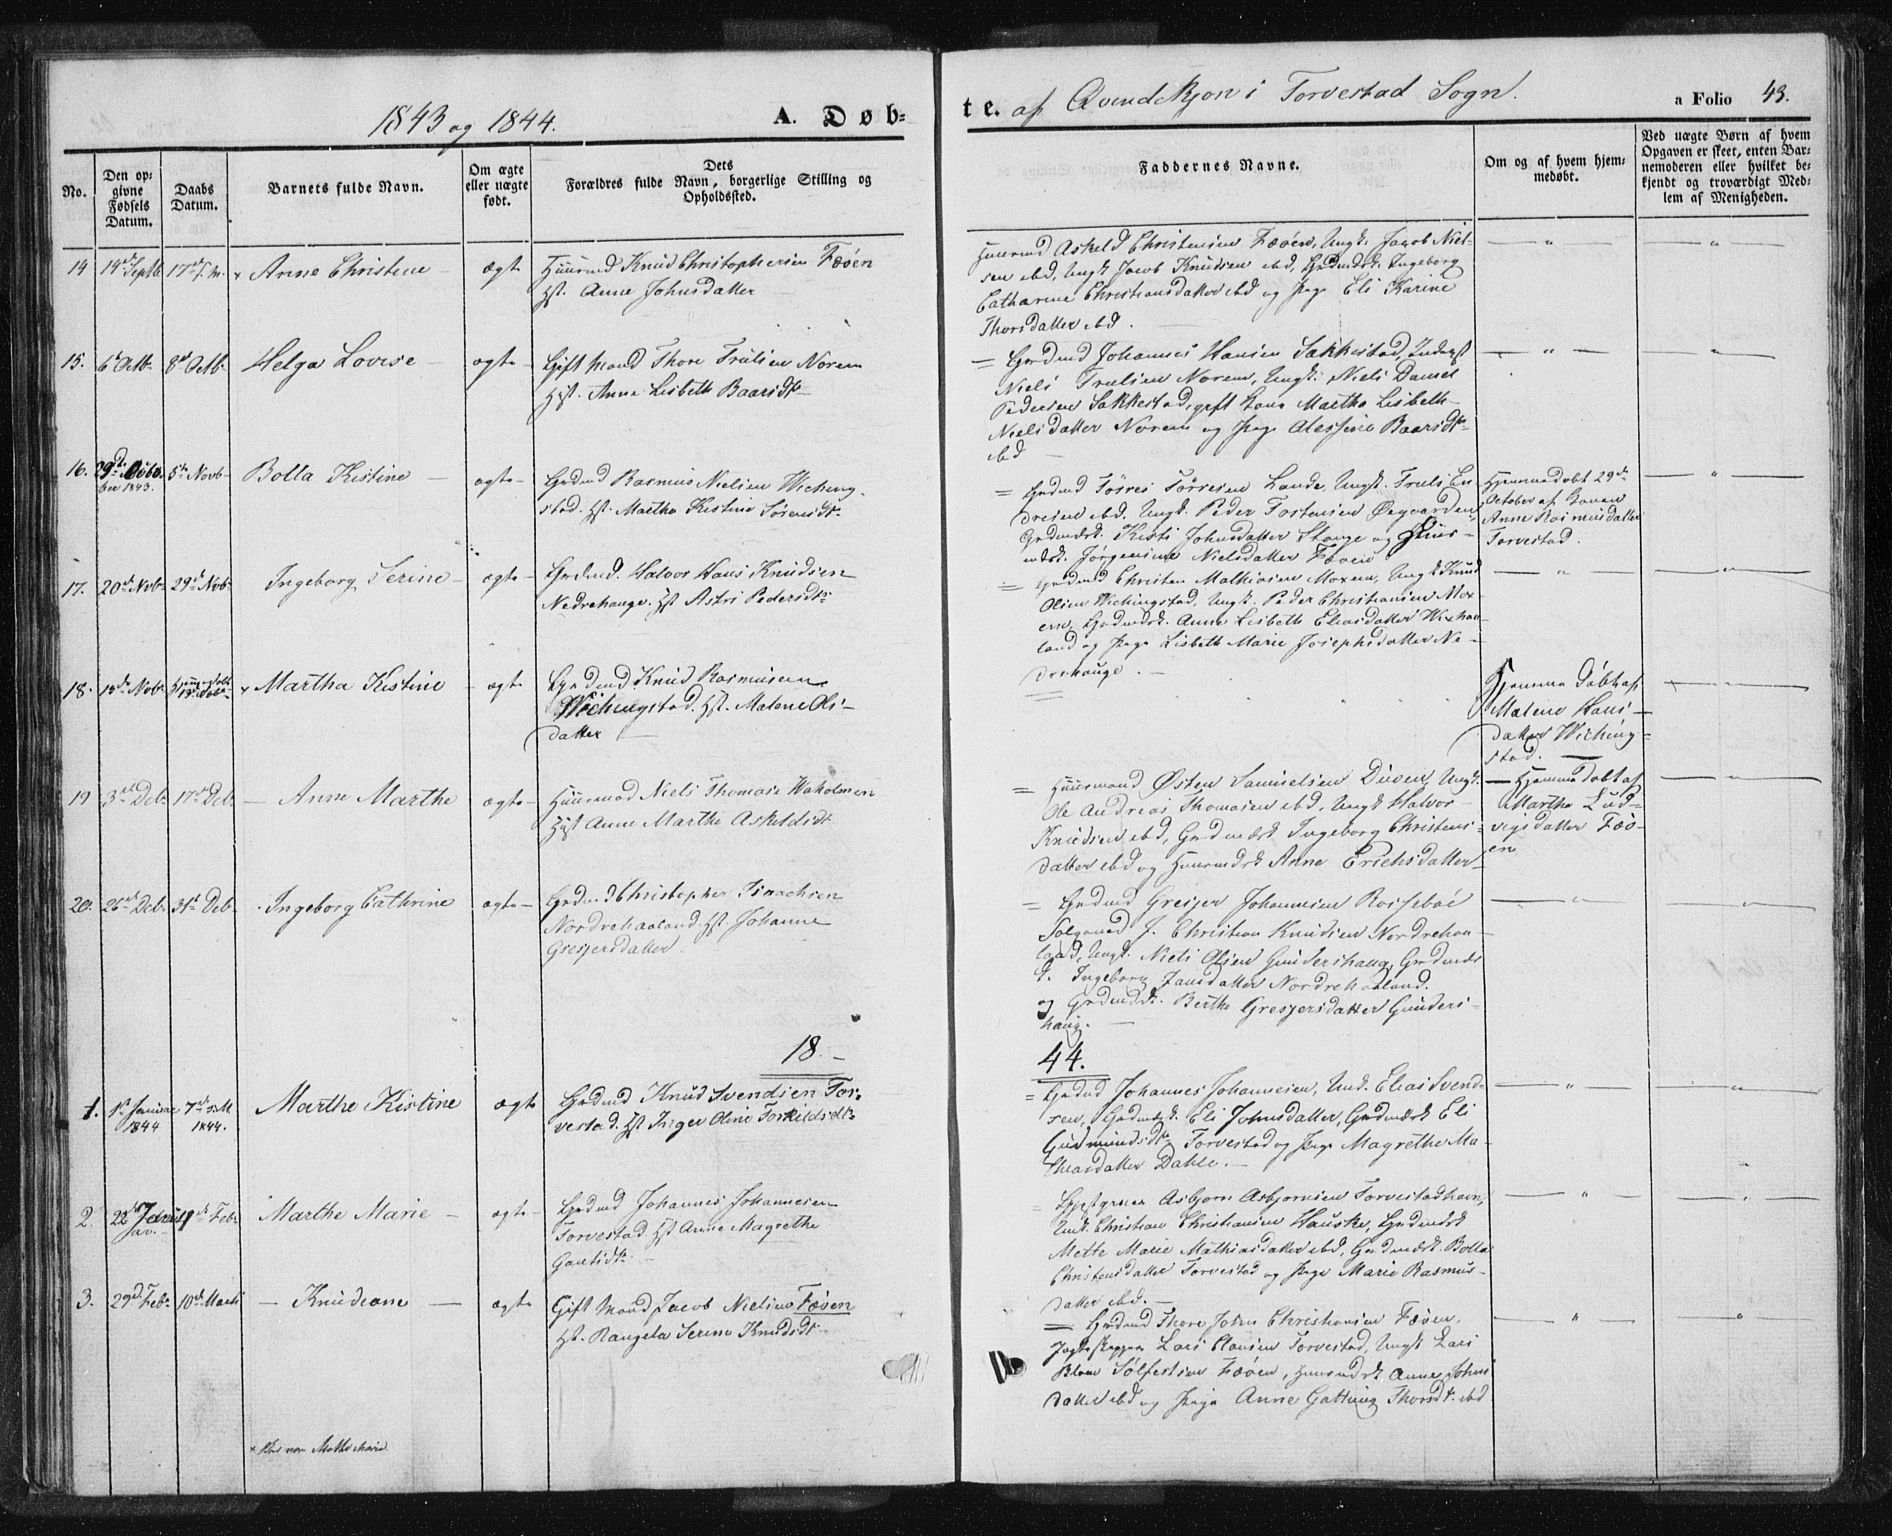 1843 og 1844.
A. Døb-
te. af Qvindekjøn i Torvestad Sogn.
a Folio 43.
No.
Den op-
givne
Fødsels
Datum.
Daabs
Datum.
Barnets fulde Navn.
Om ægte
eller uægte
født.
Dets
Forældres fulde Navn, borgerlige Stilling og
Opholdssted.
Faddernes Navne.
Om og af hvem hjem-
medøbt.
Ved uægte Børn af hvem
Opgaven er skeet, enten Bar-
nemoderen eller hvilket be-
kjendt og troværdigt Med-
lem af Menigheden.
14 14de Septb 17de s. M. × Anne Christine ægte
Huusmd Knud Christophersen Fæøen
Hst. Anne Johnsdatter
Huusmd Askeld Christensen Fæøen, Ungk. Jacob Niel-
sen ibd, Ungk. Jacob Knudsen ibd, Grdmdsk. Ingeborg
Catharine Christiansdatter ibd og Pige Eli Karine
Thorsdatter ibd.
15. 6te Octb. 8de Octb. Helga Lovise ægte
Gift Mand Thore Trulsen Norem
Hst. Anne Lisbeth Baarsdtr
Grdmd Johannes Hansen Sakkestad, Inderst
Niels Trulsen Norem, Ungk. Niels Daniel
Pedersen Sakkestad, gift Kone Martha Lisbeth
Nielsdatter Norem og Pige Alessine Baarsdtr
ibd
16. 29de Octo-
ber 1843. 5te Novb Bolla Kistine ægte
Grdmd Rasmus Nielsen Wiching-
stad. Hst. Martha Kistine Sørensdtr
Grdmd Tørres Tørresen Lande, Ungk. Truls En-
dresen ibd, Ungk. Peder Tostensen Øregaarden
Grdmdsk. Kisti Johnsdatter Stange og Huus-
mdsk. Jørgenine Nielsdatter Fæøen
Hjemmedøbt 29de
October af Konen
Anne Rasmusdatter
Torvestad.
17. 20de Novb 29de Novb Ingeborg Serine ægte
Grdmd. Halvor Hans Knudsen
Nedrehauge. Hst Astri Pedersdtr
Grdmd Christen Mathiasen Moxem, Ungk Knud
Olsen Wichingstad, Ungk. Peder Christiansen Mox-
em, Grdmdsk. Anne Lisbeth Eliasdatter
land og Pige Lisbeth Marie Josephsdatter Ne-
drehauge.
18. 13de Novb × Martha Kistine ægte
Grdmd Knud Rasmusen
Wichingstad. Hst. Malene Ols-
datter
Hjemmedøbt af
Malene Hans-
datter Wiching-
stad.
19 3die Deb. 17de Deb. Anne Marthe ægte
Huusmd Niels Thomasen Waholmen
Hst Anne Marthe Askeldsdtr
Huusmand Østen Samuelsen Duven, Ungk.
Ole Andreas Thomasen ibd, Ungk Halvor
Knudsen ibd, Grdmdsk Ingeborg Christens-
datter ibd og Huusmdsk Anne Erichsdatter
Hjemmedøbt af
Martha Lud-
vigsdatter Fæø-
en
20. 26de Deb. 31te Deb. Ingeborg Cathrine ægte
Grdmd Christopher Isaachsen
Nordrehaaland Hst Johanne
Gresjersdatter.
Grdmd Gresjer Johannesen Rossebøe
Christian Knudsen Nordrehaa-
land, Ungk. Niels Olsen Gundershaug, Grdmds
k. Ingeborg Jansdatter Nordrehaaland.
og Grdmdsk. Berthe Gresjersdatter Gunders-
haug.
18 44.
1. 1ste Januar
1844 7de s. M
1844. Marthe Kistine ægte
Grdmd Knud Svendsen Tor-
vestad. Hst Inger Oline Torkildsdtr
Grdmd Johannes Johannesen, Ungk. Elias Svend-
sen, Grdmdsk. Eli Johnsdatter, Grdmdsk Eli
Gudmundsdtr Torvestad og Pige Magrethe Ma-
thiasdatter Dahle.
2. 22de Janu Feb. Marthe Marie ægte
Grdmd Johannes Johannesen
Torvestad Hst Anne Magrethe
Asbjørn Asbjørnsen Torvestadhavn,
Ungk. Christian Christiansen Hauske, Grdmdsk
Mette Marie Mathiasdatter ibd, Grdmdsk. Bolla
Christensdatter Torvestad og Pige Marie Rasmus-
datter ibd.
3. 29de Feb. 10de Marts Knudiane ægte
Gift Mand Jacob Nielsen Fæøen
Hst. Rangela Serine Knudsdtr
Grdmd Thore John Christiansen Fæøen,
Lars Clausen Torvestad, Ungk Lars
Blom Sølfestsen Fæøen, Huusmdsk Anne Johns
datter ibd og Pige Anne Thorsdtr ibd